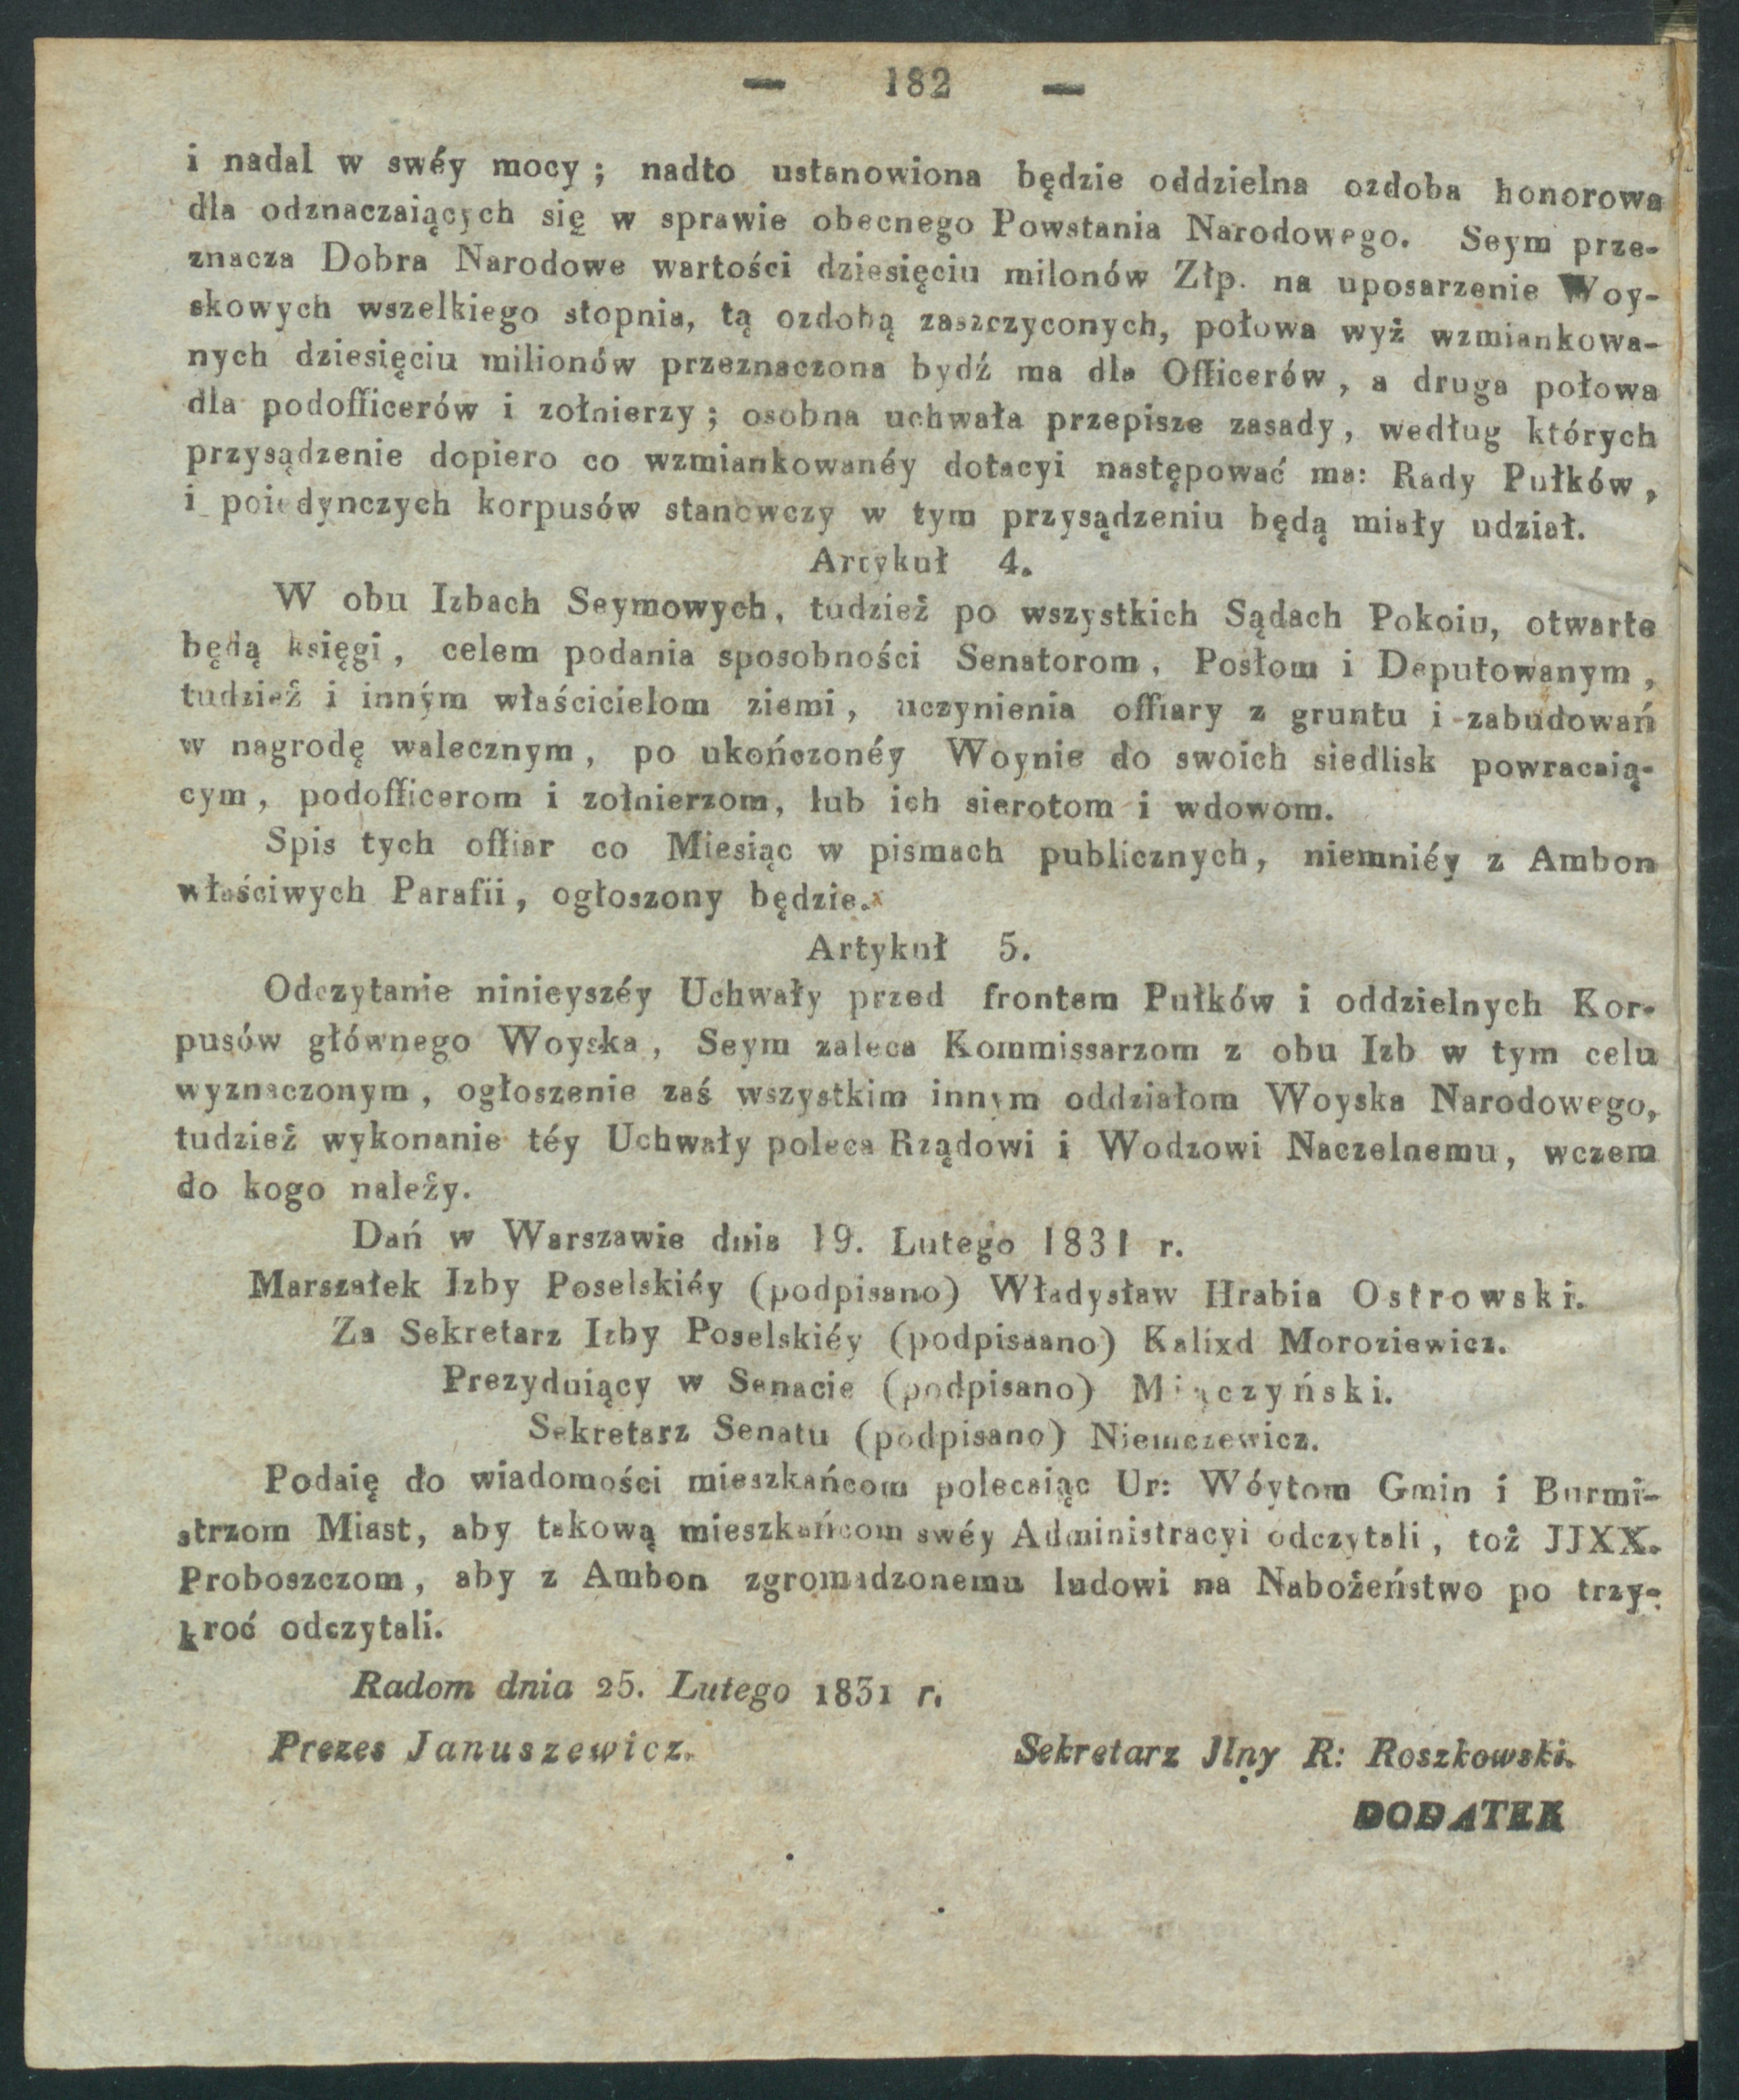 — 182 —
i nadal w swéy mocy ; nadto ustanowiona będzie oddzielna ozdoba honorowa
dla odznaczaiących się w sprawie obecnego Powstania Narodowego. Seym prze-
znacza Dobra Narodowe wartości dziesięciu milonów Złp. na uposarzenie Woy-
skowych wszelkiego stopnia, tą ozdobą zaszczyconych, połowa wyż wzmiankowa-
nych dziesięciu milionów przeznaczona bydź ma dla Officerów , a druga połowa
dla podofficerów i zołnierzy ; osobna uchwała przepisze zasady, według których
przysądzenie dopiero co wzmiankowanéy dotacyi następować ma: Rady Pułków ,
i poiedynczych korpusów stanowczy w tym przysądzeniu będą miały udział.
Artykuł 4.
W obu Izbach Seymowych, tudzież po wszystkich Sądach Pokoiu, otwarte
będą księgi , celem podania sposobności Senatorom , Posłom i Deputowanym ,
tudzież i inným właścicielom ziemi , uczynienia offiary z gruntu i zabudowań
w nagrodę walecznym , po ukończonéy Woynie do swoich siedlisk powracaią-
cym , podofficerom i zołnierzom, lub ich sierotom i wdowom.
Spis tych offiar co Miesiąc w pismach publicznych, niemniéy z Ambon
właściwych Parafii , ogłoszony będzie.
Artykuł 5.
Odczytanie ninieyszéy Uchwały przed frontem Pułków i oddzielnych Kor-
pusów głównego Woyska , Seym zaleca Kommissarzom z obu Izb w tym celu
wyznaczonym , ogłoszenie zaś wszystkim innym oddziałom Woyska Narodowego,
tudzież wykonanie téy Uchwały poleca Rządowi i Wodzowi Naczelnemu, wczem
do kogo należy.
Dań w Warszawie dnia 19. Lutego 1831 r.
Marszałek Izby Poselskiéy (podpisano) Władysław Hrabia Ostrowski.
Za Sekretarz Izby Poselskiéy (podpisaano) Kalixd Moroziewicz.
Prezyduiący w Senacie (podpisano) Miączyński.
Sekretarz Senatu (podpisano) Niemczewicz.
Podaię do wiadomości mieszkańcom polecaiąc Ur: Wóytom Gmin i Burmi-
strzom Miast, aby takową mieszkańcom swéy Administracyi odczytali , toż JJXX.
Proboszczom , aby z Ambon zgromadzonemu ludowi na Nabożeństwo po trzy-
kroć odczytali.
Radom dnia 25. Lutego 1831 r.
Prezes Januszewicz.
Sekretarz Jlny R: Roszkowski.
DODATEK